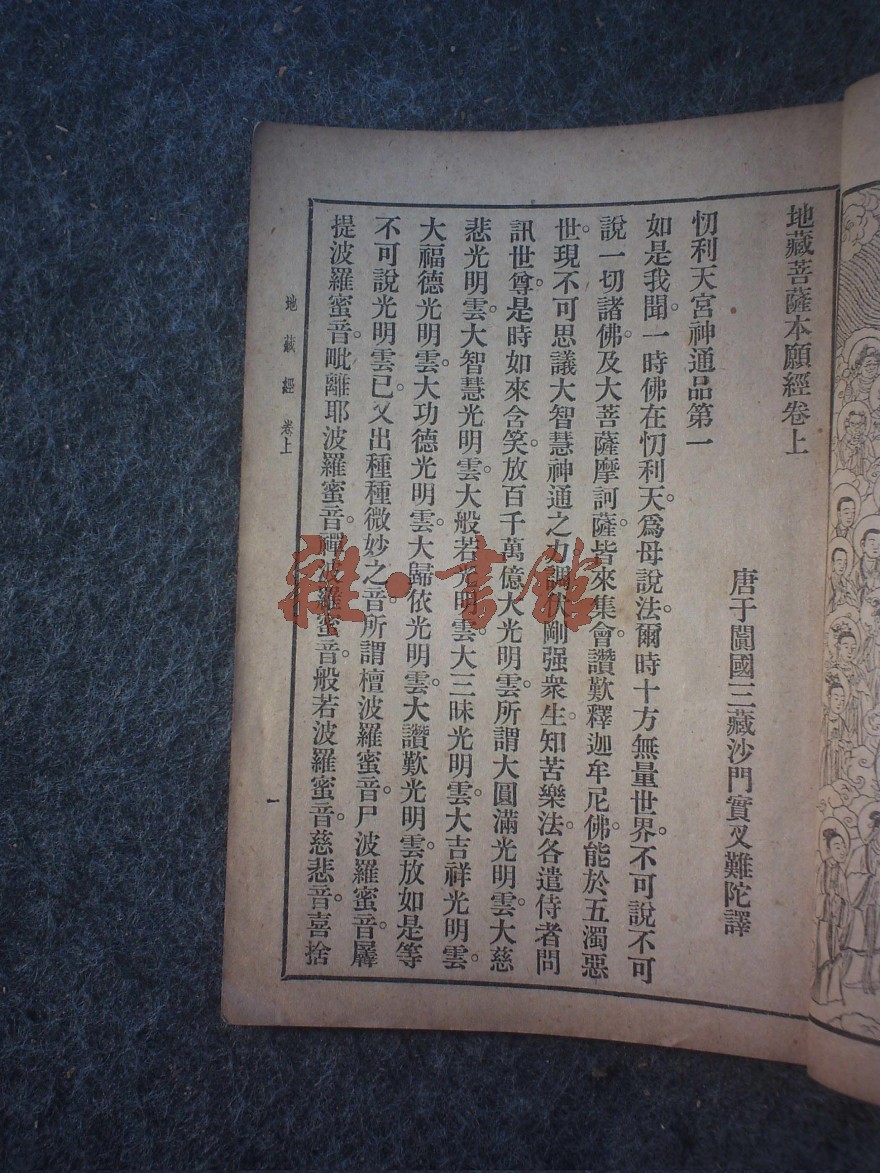 地藏菩薩本願經卷上
唐于闐國三藏沙門實叉難陀譯
忉利天宮神通品第一
如是我聞。一時佛在忉利天。爲母說法。爾時十方無量世界。不可說不可
說一切諸佛。及大菩薩摩訶薩。皆來集會。讚歎釋迦牟尼佛。能於五濁惡
世。現不可思議大智慧神通之力。調伏剛强衆生。知苦樂法。各遣侍者。問
訊世尊。是時如來含笑。放百千萬億大光明雲。所謂大圓滿光明雲。大慈
悲光明雲。大智慧光明雲。大般若光明雲。大三昧光明雲。大吉祥光明雲。
大福德光明雲。大功德光明雲。大歸依光明雲。大讚歎光明雲。放如是等
不可說光明雲已。又出種種微妙之音。所謂檀波羅蜜音。尸波羅蜜音。羼
提波羅蜜音。毗離耶波羅蜜音。禪波羅蜜音。般若波羅蜜音。慈悲音。喜捨
地藏經 卷上
一
雜·書館